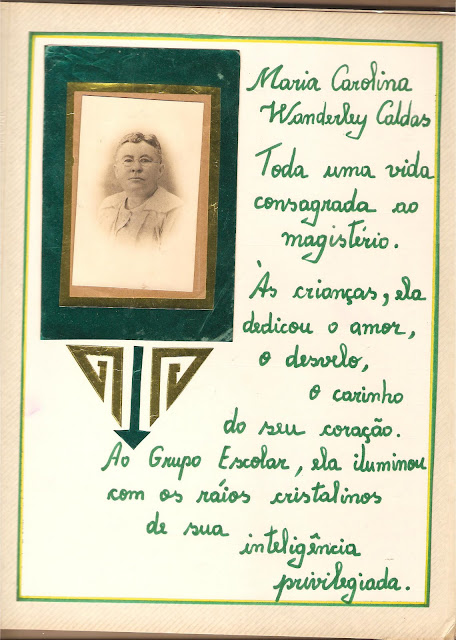 Maria Carolina
Wanderley Caldas
Toda uma vida
consagrada ao
magistério.
Às crianças, ela
dedicou o amor,
o desvelo,
o carinho
do seu coração.
Ao Grupo Escolar, ela iluminou
com os ráios cristalinos
de sua
inteligência
privilegiada.